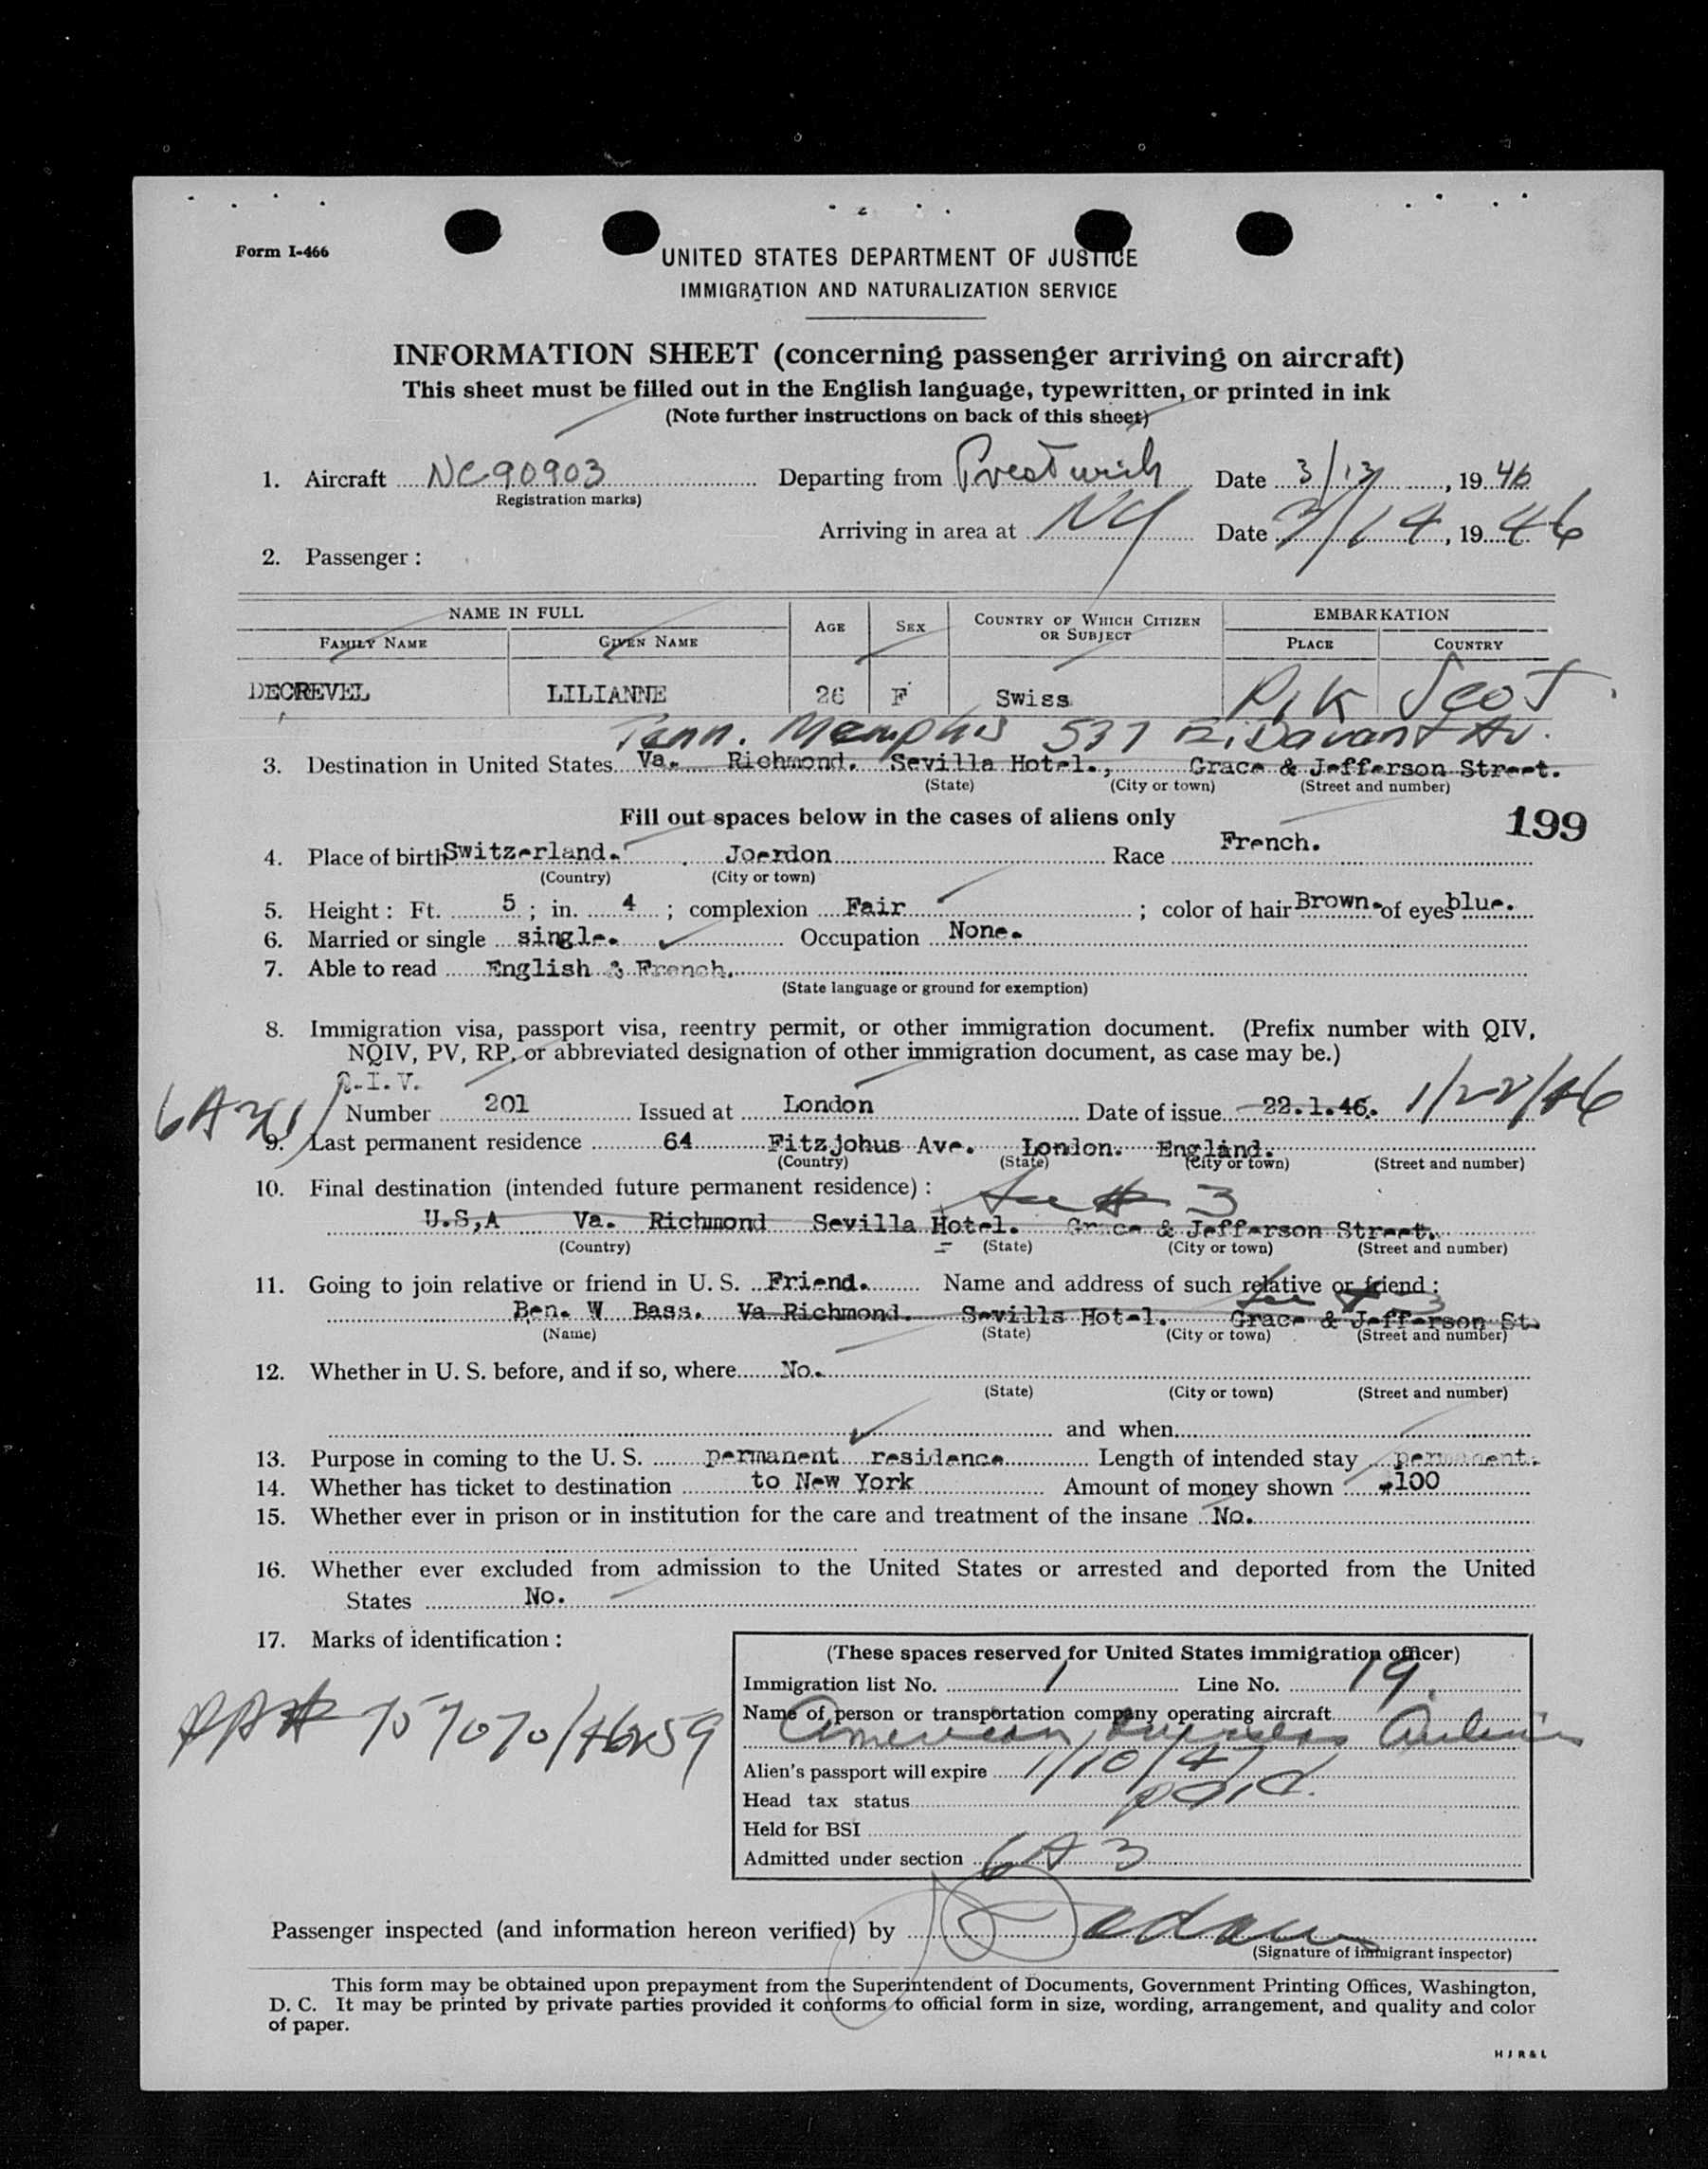 Form I-466
UNITED STATES DEPARTMENT OF JUSTICE
IMMIGRATION AND NATURALIZATION SERVICE
INFORMATION SHEET (concerning passenger arriving on aircraft)
This sheet must be filled out in the English language, typewritten, or printed in ink
(Note further instructions on back of this sheet)
1. Aircraft NC90903 Departing from Prestwick Date 3/13, 1946
(Registration marks)
Arriving in area at NY Date 3/14, 1946
2. Passenger:
NAME IN FULL AGE SEX COUNTRY OF WHICH CITIZEN OR SUBJECT EMBARKATION
FAMILY NAME GIVEN NAME PLACE COUNTRY
DECREVEL LILIANNE 26 F Swiss Scot.
Tenn. Memphis 537 E. Davant Av.
3. Destination in United States Va. Richmond. Sevilla Hotel., Grace & Jefferson Street.
(State) (City or town) (Street and number)
Fill out spaces below in the cases of aliens only 199
4. Place of birth Switzerland. Joerdon Race French.
(Country) (City or town)
5. Height: Ft. 5; in. 4; complexion Fair; color of hair Brown. of eyes blue.
6. Married or single single. Occupation None.
7. Able to read English & French.
(State language or ground for exemption)
8. Immigration visa, passport visa, reentry permit, or other immigration document. (Prefix number with QIV,
NQIV, PV, RP, or abbreviated designation of other immigration document, as case may be.)
Q.I.V.
Number 201 Issued at London Date of issue 22.1.46. 1/22/46
9. Last permanent residence 64 Fitzjohus Ave. London. England.
(Country) (State) (City or town) (Street and number)
10. Final destination (intended future permanent residence): See # 3
U.S,A Va. Richmond Sevilla Hotel. Grace & Jefferson Street.
(Country) (State) (City or town) (Street and number)
11. Going to join relative or friend in U. S. Friend. Name and address of such relative or friend:
See # 3
Ben. W Bass. Va Richmond. Sevills Hotel. Grace & Jefferson St.
(Name) (State) (City or town) (Street and number)
12. Whether in U. S. before, and if so, where No.
(State) (City or town) (Street and number)
and when
13. Purpose in coming to the U. S. permanent residence Length of intended stay permanent.
14. Whether has ticket to destination to New York Amount of money shown 100
15. Whether ever in prison or in institution for the care and treatment of the insane No.
16. Whether ever excluded from admission to the United States or arrested and deported from the United
States No.
17. Marks of identification:
(These spaces reserved for United States immigration officer)
Immigration list No. 1 Line No. 19
Name of person or transportation company operating aircraft
American Overseas Airlines
Alien's passport will expire 1/10/47
Head tax status paid.
Held for BSI
Admitted under section 6A3
Passenger inspected (and information hereon verified) by
(Signature of immigrant inspector)
This form may be obtained upon prepayment from the Superintendent of Documents, Government Printing Offices, Washington,
D. C. It may be printed by private parties provided it conforms to official form in size, wording, arrangement, and quality and color
of paper.
H J R & L